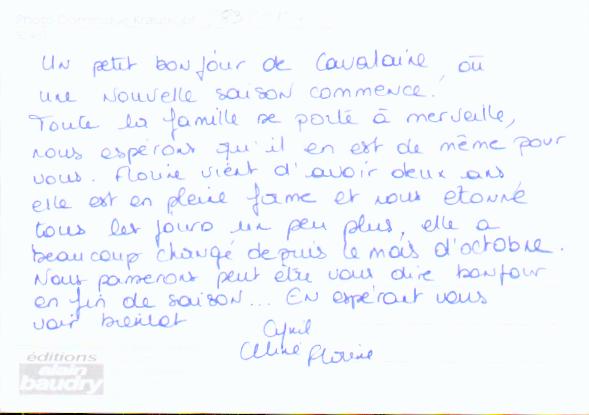 Photo Dominique Krauskopf 83
Un petit bonjour de Cavalaire, où
une nouvelle saison commence.
Toute la famille se porte à merveille,
nous espérons qu'il en est de même pour
vous. Florine vient d'avoir deux ans,
elle est en pleine forme et nous etonne
tous les jours un peu plus, elle a
beaucoup changé depuis le mois d'octobre.
Nous passerons peut être vous dire bonjour
en fin de saison... En espérant vous
voir bientot
Cyril
Céline Florine
éditions
alain
baudry